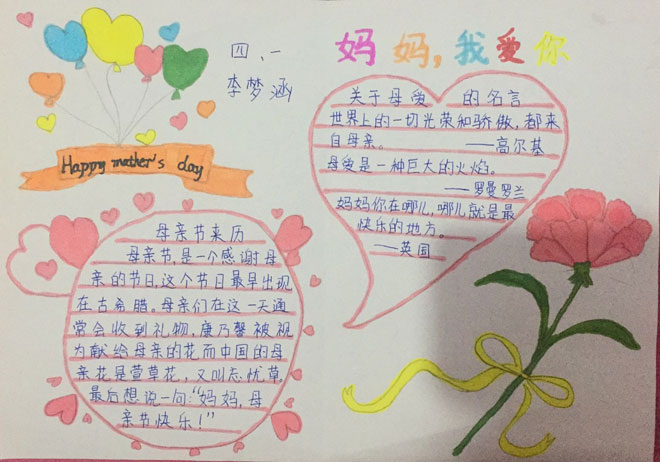 妈妈,我爱你
四、一
李梦涵
Happy mother's day
关于母爱的名言
世界上的一切光荣和骄傲,都来
自母亲。 ——高尔基
母爱是一种巨大的火焰。
——罗曼罗兰
妈妈你在哪儿,哪儿就是最
快乐的地方。
——英国
母亲节来历
母亲节,是一个感谢母
亲的节日,这个节日最早出现
在古希腊。母亲们在这一天通
常会收到礼物,康乃馨被视
为献给母亲的花而中国的母
亲花是萱草花,又叫忘忧草。
最后想说一句:“妈妈,母
亲节快乐!”